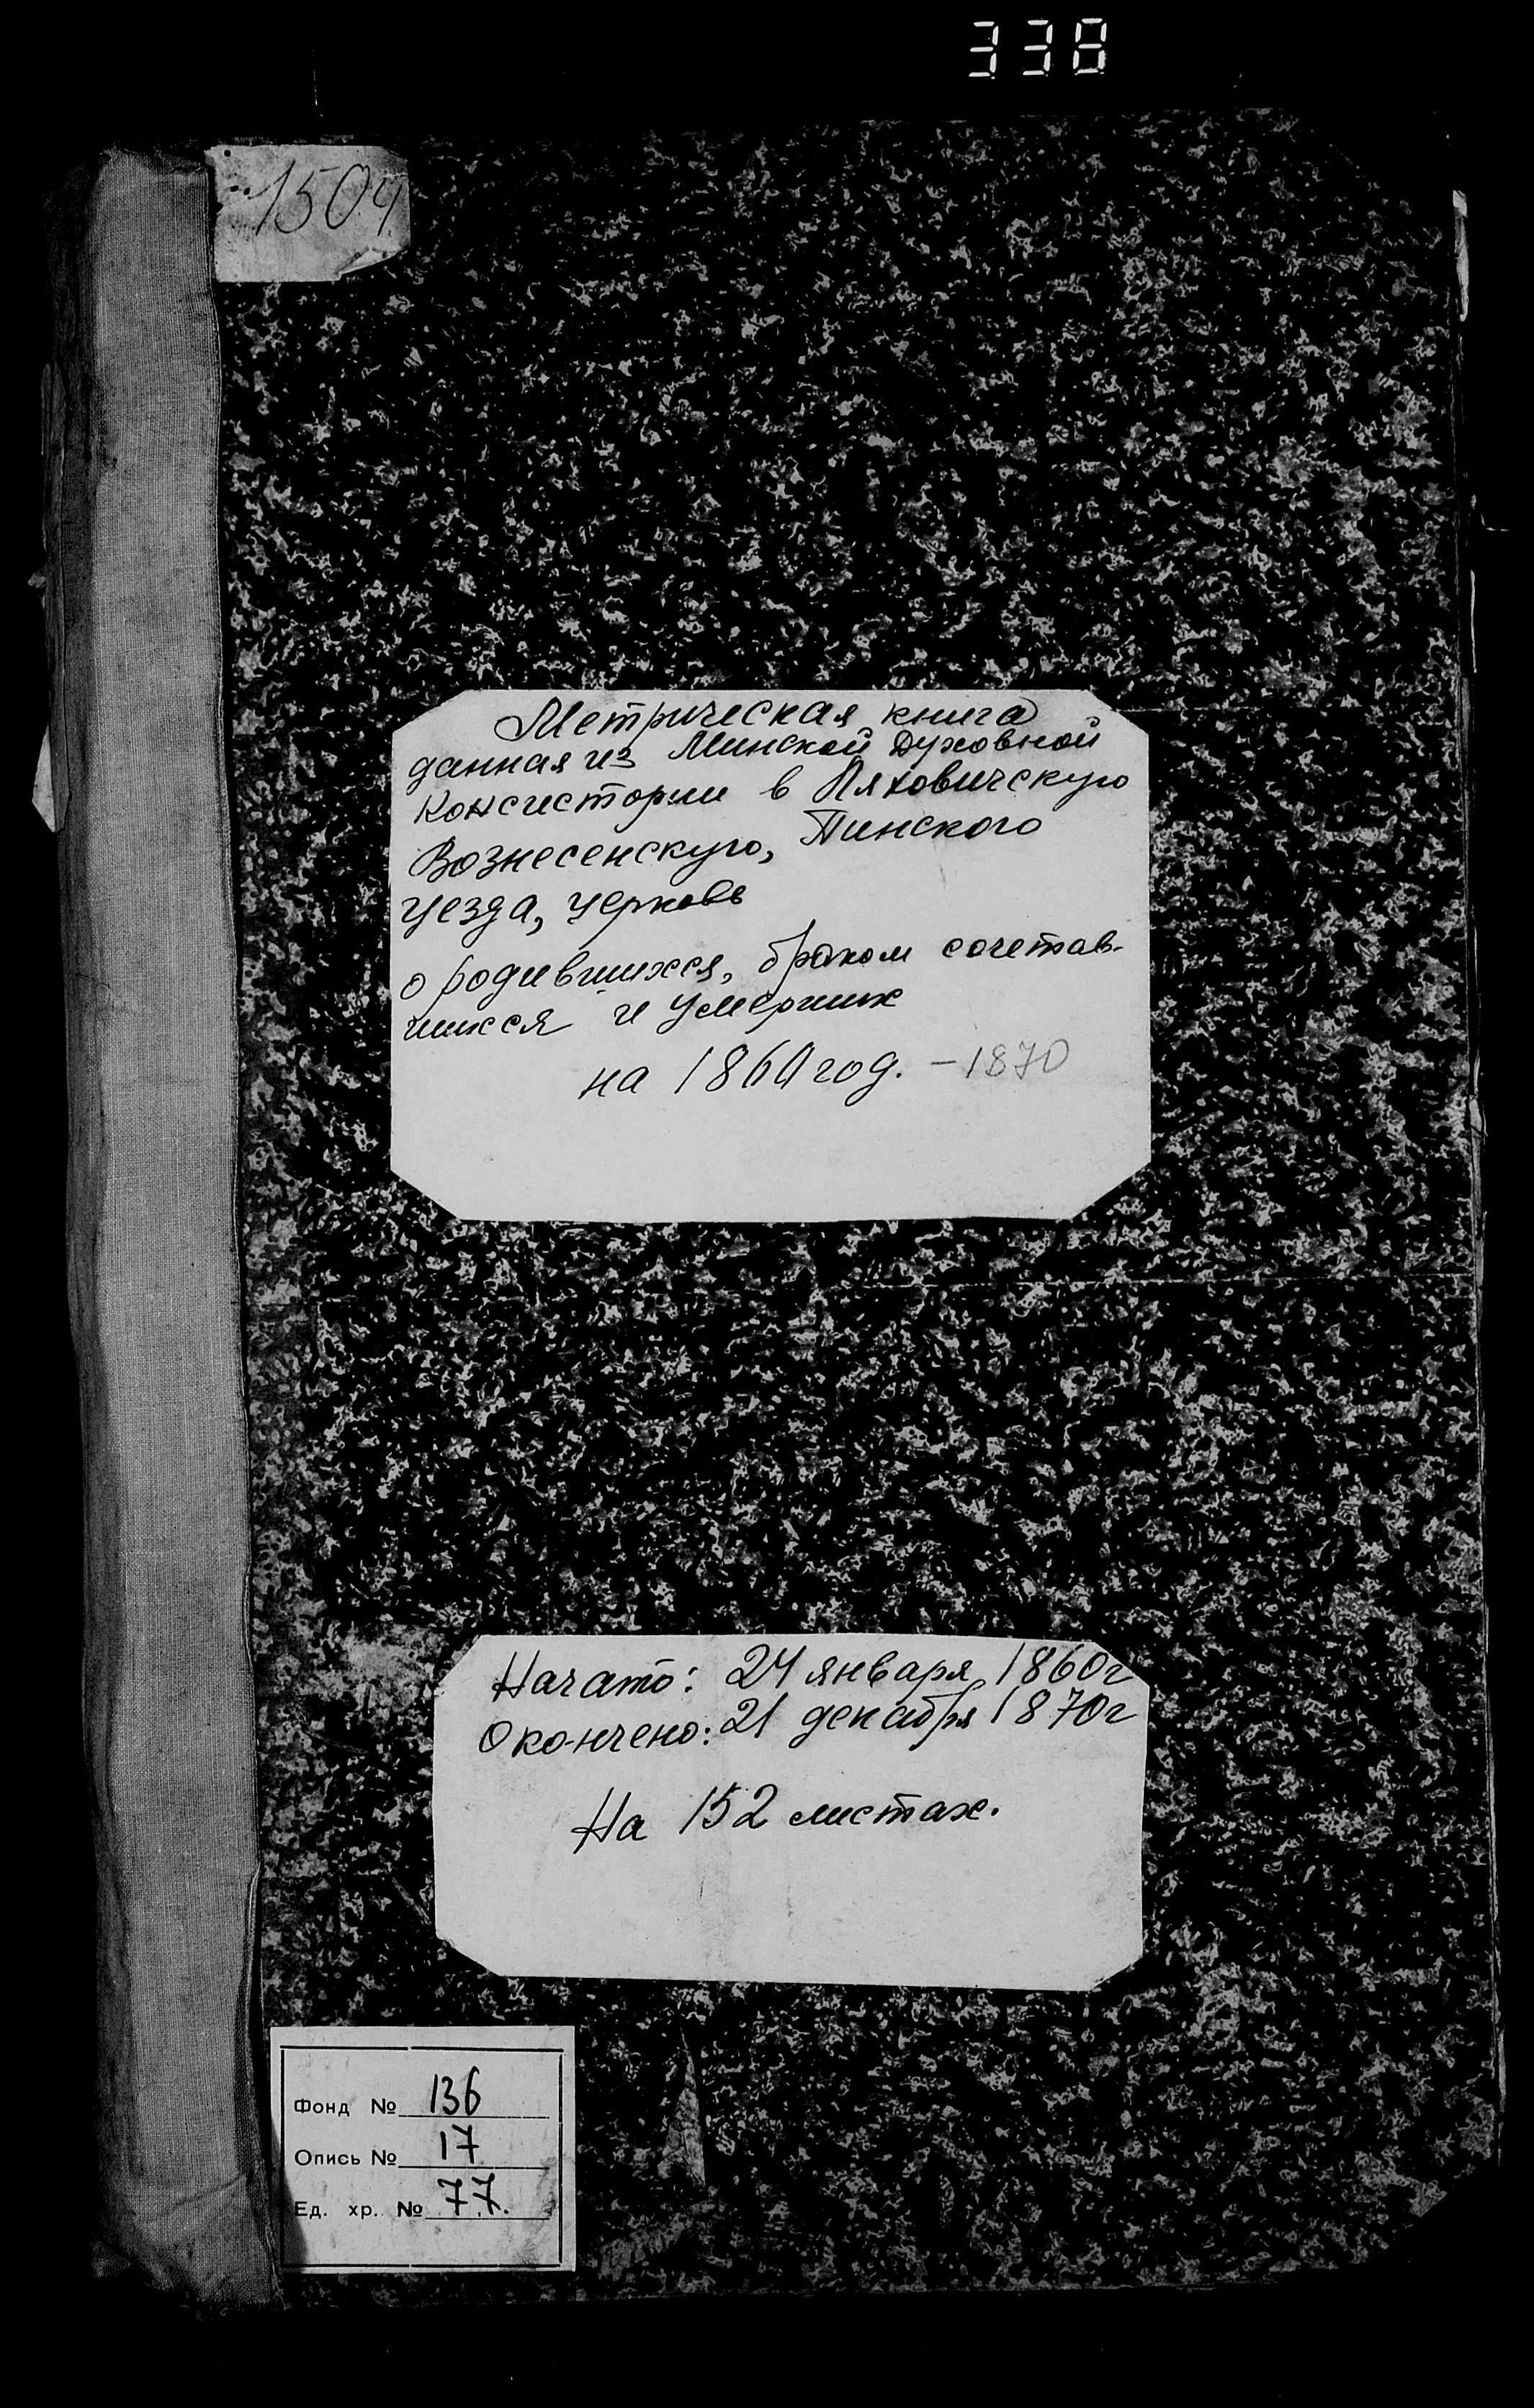 338
1504
Метрическая книга
данная из Минской Духовной
Консистории в Ляховичскую
Вознесенскую, Пинского
уезда, церковь
о родившихся, браком сочетав-
шихся и умерших
на 1860 год. – 1870
Начато: 24 января 1860г
Окончено: 21 декабря 1870г
На 152 листах.
Фонд № 136
Опись № 17
Ед. хр. № 77.